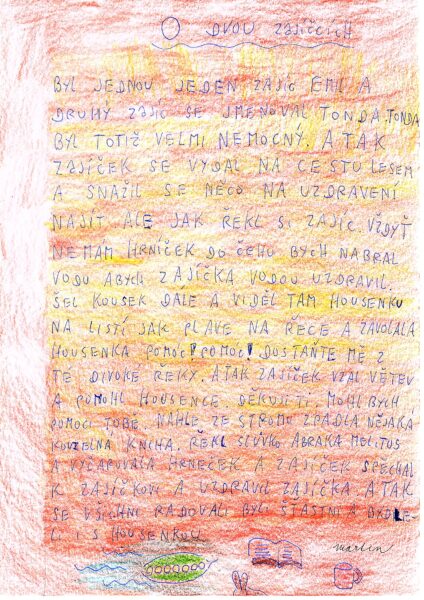 O DVOU ZAJÍČCÍCH
BYL JEDNOU JEDEN ZAJÍC EMIL A
DRUHÝ ZAJÍC SE JMENOVAL TONDA TONDA
BYL TOTIŽ VELMI NEMOCNÝ. A TAK
ZAJÍČEK SE VYDAL NA CESTU LESEM
A SNAŽIL SE NĚCO NA UZDRAVENÍ
NAJÍT ALE JAK ŘEKL SI ZAJÍC. VŽDYŤ
NEMÁM HRNÍČEK DO ČEHU BYCH NABRAL
VODU ABYCH ZAJÍČKA VODOU UZDRAVIL.
ŠEL KOUSEK DÁLE A VIDĚL TAM HOUSENKU
NA LISTÍ JAK PLAVE NA ŘECE A ZAVOLALA
HOUSENKA POMOC! POMOC! DOSTAŇTE MĚ Z
TÉ DIVOKÉ ŘEKY. A TAK ZAJÍČEK VZAL VĚTEV
A POMOHL HOUSENCE DĚKUJI TI. MOHL BYCH
POMOCI TOBĚ. NÁHLE ZE STROMU SPADLA NĚJAKÁ
KOUZELNÁ KNIHA. ŘEKL SLŮVKO ABRAKA MOLITUS
A VYČAROVALA HRNEČEK A ZAJÍČEK SPĚCHAL
K ZAJÍČKOVI A UZDRAVIL ZAJÍČKA A TAK
SE VŠICHNI RADOVALI BYLI ŠŤASTNÍ A BYDLE-
LI I S HOUSENKOU
martin